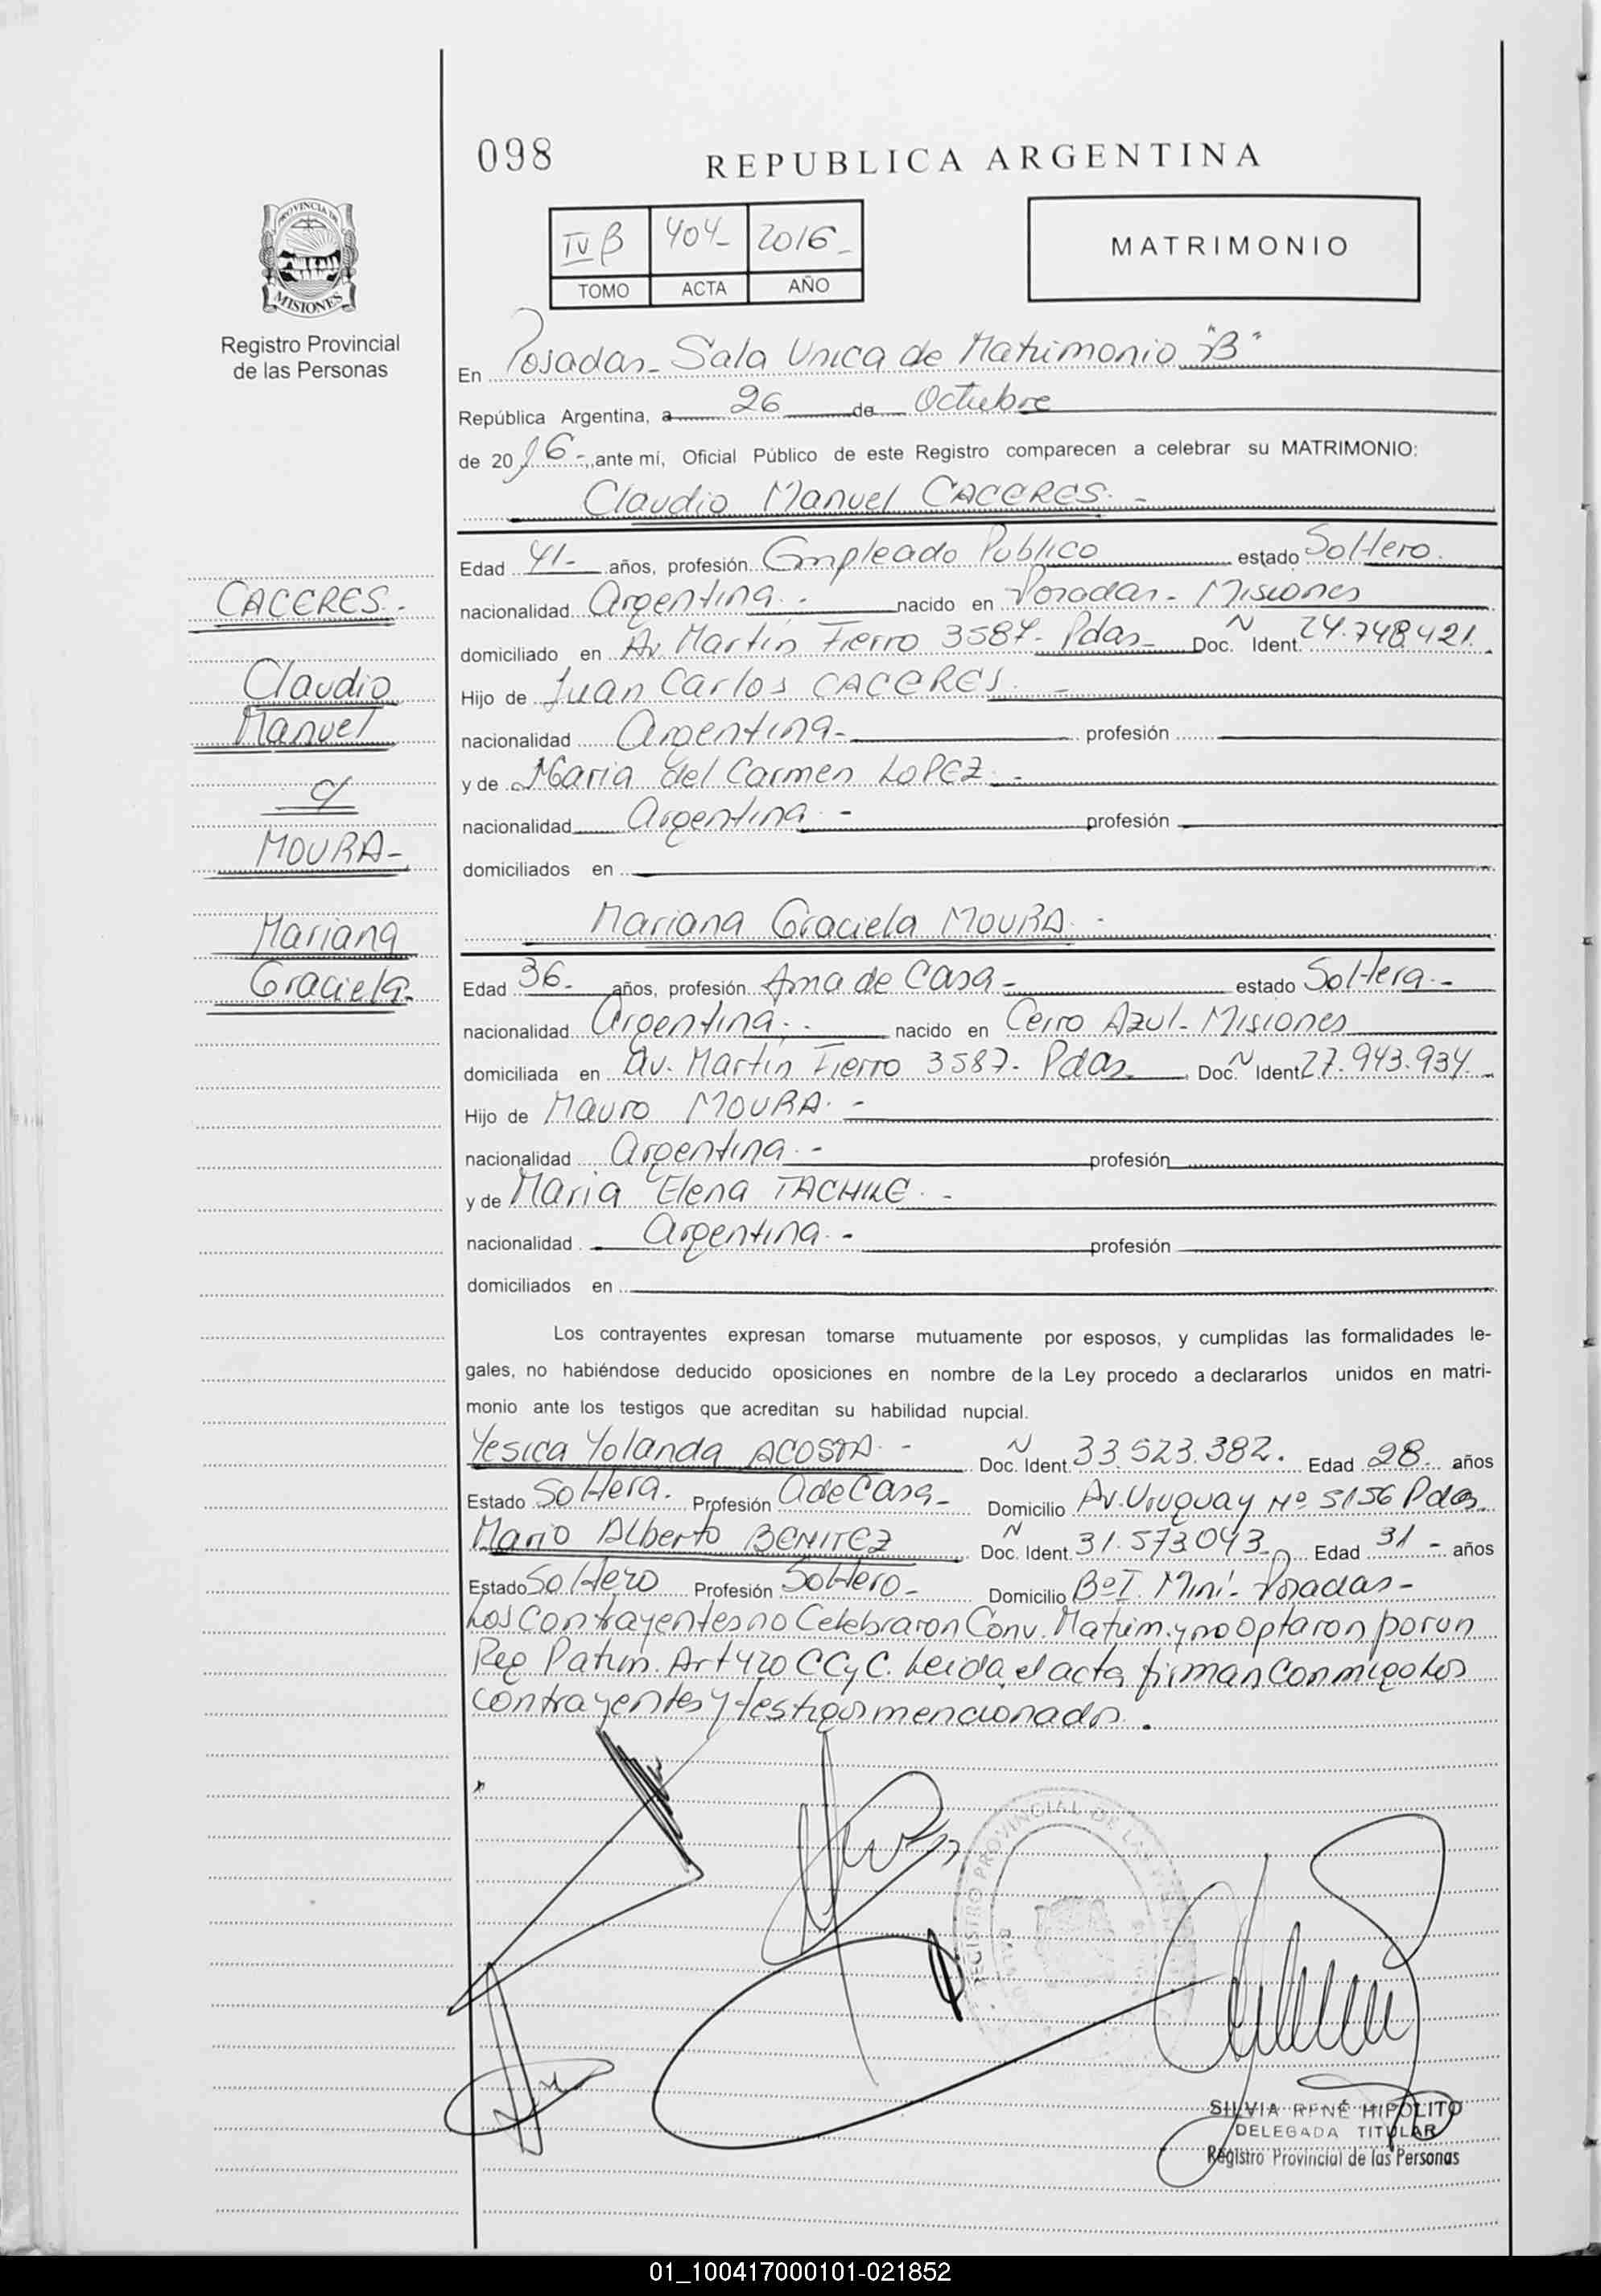 098
REPUBLICA ARGENTINA
IV B 404- 2016-
TOMO ACTA AÑO
MATRIMONIO
PROVINCIA DE
MISIONES
Registro Provincial
de las Personas
En Posadas- Sala Unica de Matrimonio "B"
República Argentina, a 26 de Octubre
de 2016-, ante mí, Oficial Público de este Registro comparecen a celebrar su MATRIMONIO:
Claudio Manuel CACERES.-
Edad 41- años, profesión Empleado Publico estado Soltero.
nacionalidad Argentina.- nacido en Posadas- Misiones
domiciliado en Av. Martin Fierro 3587- Pdas- Doc. N Ident. 24.748.421.
Hijo de Juan Carlos CACERES.-
nacionalidad Argentina- profesión
y de Maria del Carmen LOPEZ.-
nacionalidad Argentina.- profesión
domiciliados en
CACERES.-
Claudio
Manuel
c/
MOURA-
Mariana
Graciela-
Mariana Graciela MOURA.-
Edad 36- años, profesión Ama de Casa- estado Soltera.-
nacionalidad Argentina.- nacido en Cerro Azul- Misiones
domiciliada en Av. Martin Fierro 3587- Pdas- Doc. N Ident. 27.943.934.-
Hijo de Mauro MOURA.-
nacionalidad Argentina.- profesión
y de Maria Elena TACHILE.-
nacionalidad Argentina.- profesión
domiciliados en
Los contrayentes expresan tomarse mutuamente por esposos, y cumplidas las formalidades le-
gales, no habiéndose deducido oposiciones en nombre de la Ley procedo a declararlos unidos en matri-
monio ante los testigos que acreditan su habilidad nupcial.
Yesica Yolanda ACOSTA.- Doc. N Ident. 33.523.382. Edad 28. años
Estado Soltera. Profesión A de Casa- Domicilio Av. Uruguay Nº 5156 Pdas
Mario Alberto BENITEZ Doc. N Ident. 31.573.043- Edad 31- años
Estado Soltero Profesión Soltero- Domicilio Bº I. Miní- Posadas-
Los Contrayentes no Celebraron Conv. Matrim. y no Optaron por un
Reg Patrim. Art 420 CCyC. Leida el acta, firman Conmigo los
contrayentes y testigos mencionados.
REGISTRO PROVINCIAL DE LAS
SILVIA RENÉ HIPOLITO
DELEGADA TITULAR
Registro Provincial de las Personas
01_100417000101-021852